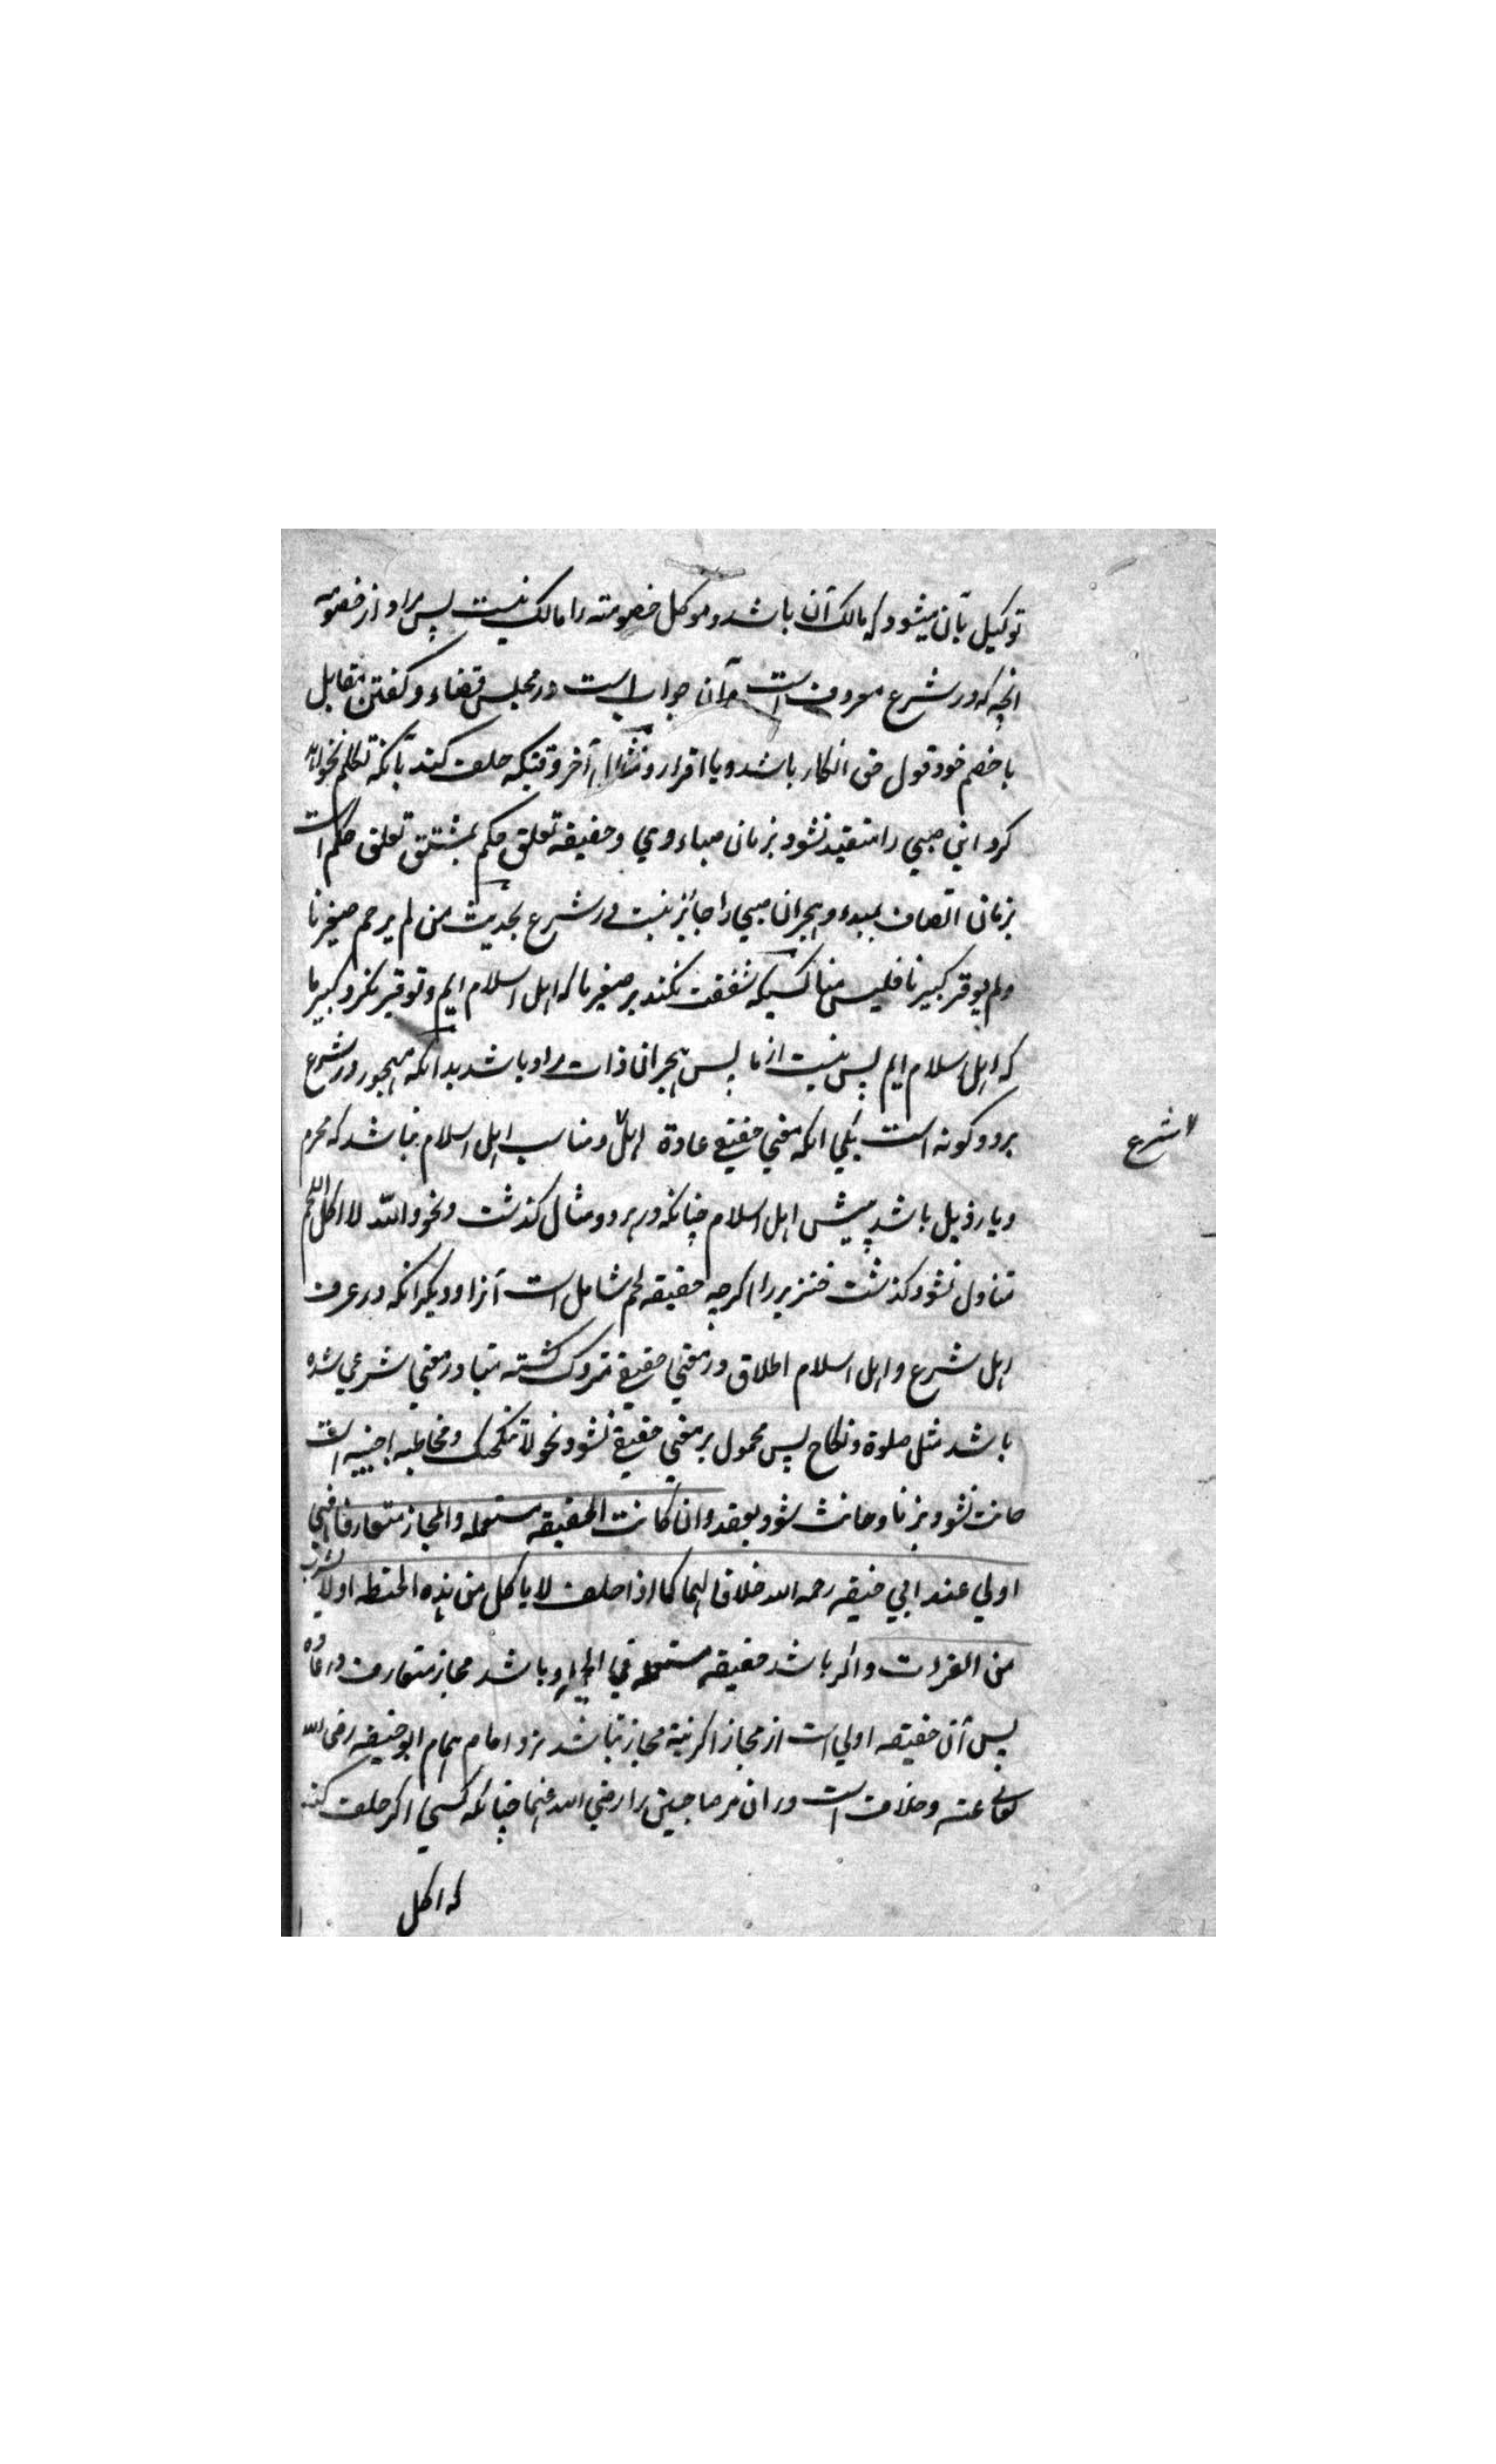 توکیل بآن میشود که مالک آن باشد و موکل خصومته را مالک نیست پس مراد از خصومة
انچه که در شرع معروف است و آن جواب است در مجلس قضاء و کفتن مقابل
با خصم خود قول حق انکار باشد و یا اقرار و مثال آخر وقتیکه حلف کند بآنکه تکلم نخواهد
کرد این صبی را متقید نشود بزمان صباء وی و حقیقه تعلق حکم بمشتق تعلق حکم است
بزمان اتصاف بمبدء و هجران صبی را جائز نیست در شرع بحدیث من لم یرحم صغیرنا
ولم یوقر کبیرنا فلیس منا کسیکه شفقت نکند بر صغیر ما که اهل اسلام ایم و توقیر نکرد کبیر ما
که اهل اسلام ایم پس نیست از ما پس هجران ذات مراد باشد بدانکه مهجور در شرع
بر دو کونه است یکی انکه معنی حقیقی عادة اهل و مناسب اهل اسلام نباشد که محرم
شرع
و یا رذیل باشد پیش اهل اسلام چنانکه در هر دو مثال کذشت و نحو والله لا اکل اللحم
متناول نشود کذشت خنزیر را اکرچه حقیقه لحم شامل است آنرا و دیکر انکه در عرف
اهل شرع و اهل اسلام اطلاق در معنی حقیقی متروک کشته متبادر معنی شرعی شده
باشد مثل صلوة و نکاح پس محمول بر معنی حقیقی نشود نحو لا تنکحک و مخاطبه اجنبیه است
حانث نشود بزنا و حانث شود بعقد وان کانت الحقیقه مستعمله والمجاز متعارفا فهی
اولی عند ابی حنیفه رحمه الله خلافا لهما کما اذا حلف لا یاکل من هذه الحنطه او لا یشرب
من الفرات و اکر باشد حقیقه مستعمله فی الجمله و باشد مجاز متعارف در
پس آن حقیقه اولی است از مجاز اکر نیة مجاز نباشد نزد امام همام ابو حنیفه رضی الله
تعالی عنه و خلاف است در ان مر صاحبین را رضی الله عنهما چنانکه کسی اکر حلف کند
که اکل